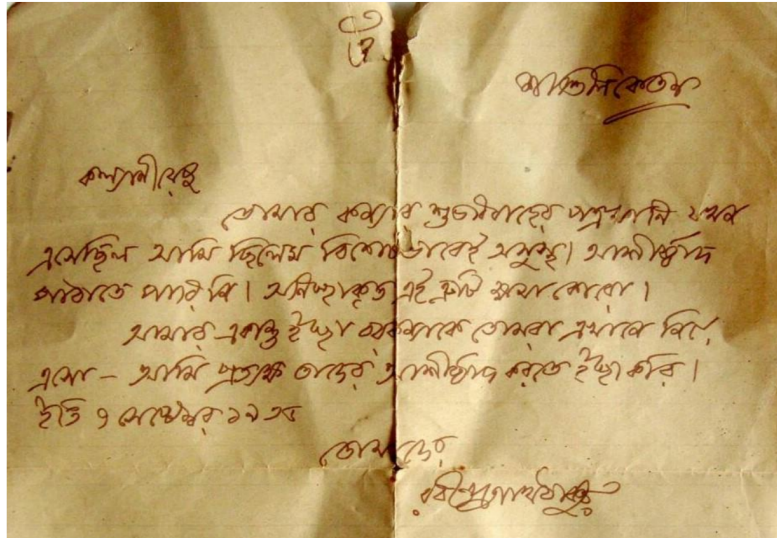 ওঁ
শান্তিনিকেতন
কল্যাণীয়েষু
তোমার কন্যার শুভবিবাহের পত্রখানি যখন
এসেছিল আমি ছিলেম বিশেষভাবেই অসুস্থ। আশীর্ব্বাদ
পাঠাতে পারিনি। অনিচ্ছাকৃত এই ত্রুটি ক্ষমা কোরো।
আমার একান্ত ইচ্ছা বরকন্যাকে তোমরা এখানে নিয়ে
এসো – আমি প্রত্যক্ষ তাদের আশীর্ব্বাদ করতে ইচ্ছা করি।
ইতি ৭ সেপ্টেম্বর ১৯৩৮
তোমাদের
রবীন্দ্রনাথ ঠাকুর